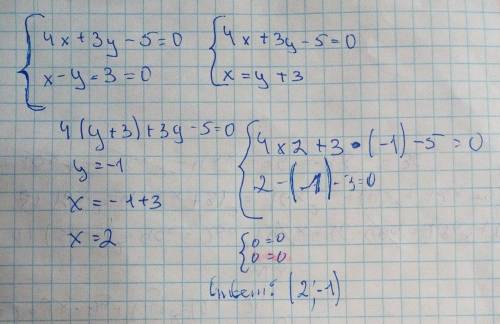 { 4x+3y-5=0
x-y=3=0
{ 4x+3y-5=0
x=y+3
4(y+3)+3y-5=0
y=-1
x=-1+3
x=2
{ 4x2+3•(-1)-5=0
2-(-1)-3=0
{ 0=0
0=0
Ответ: (2;-1)